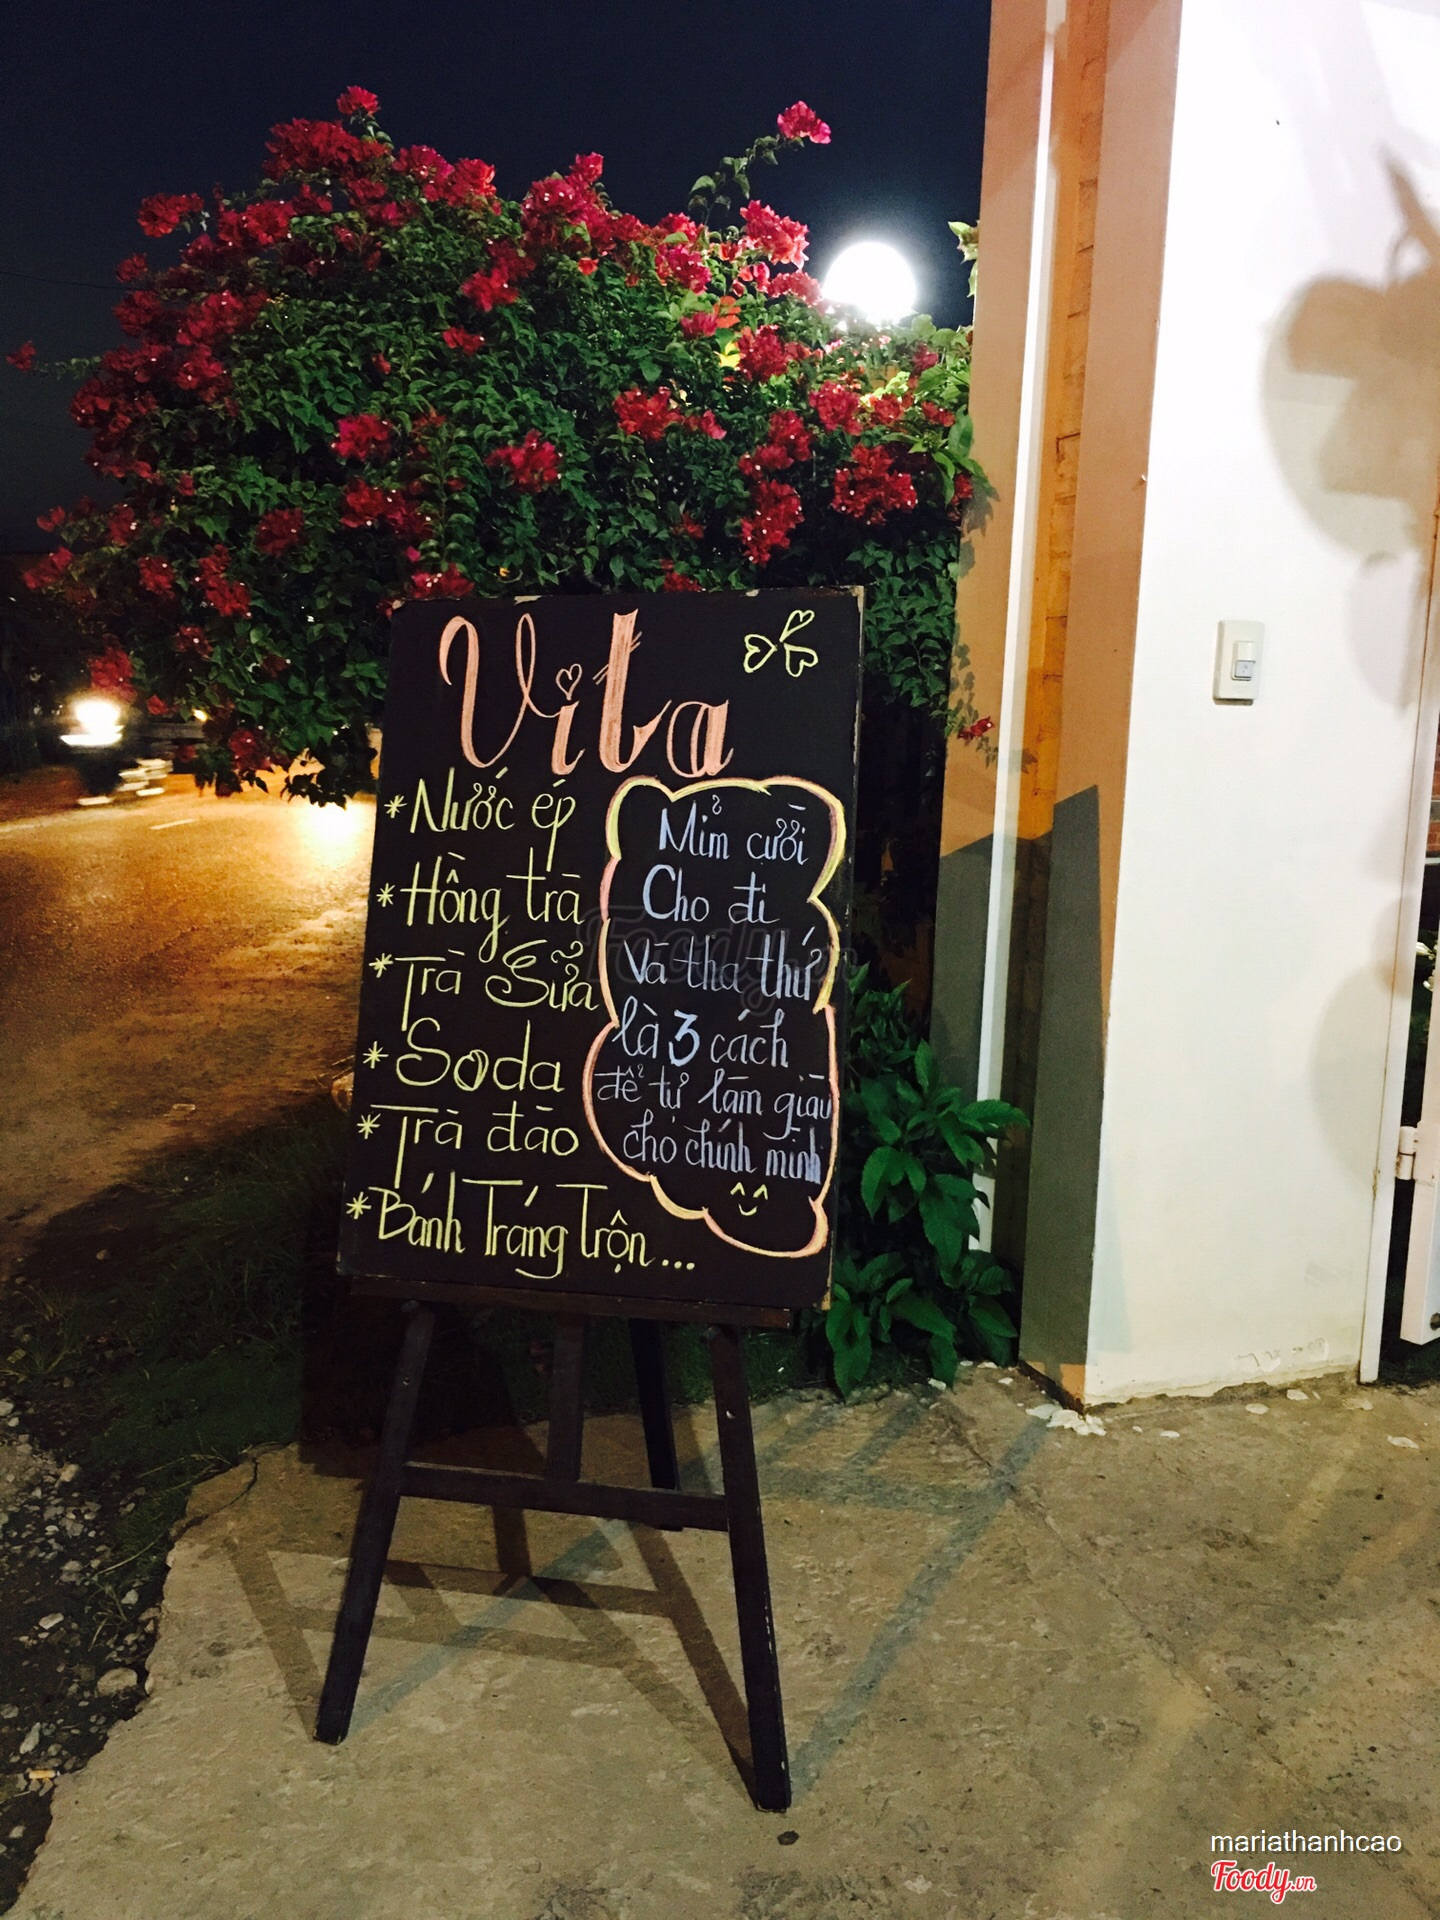 Vita
* Nước ép
* Hồng trà
* Trà Sữa
* Soda
* Trà đào
* Bánh Tráng Trộn...
Mỉm cười
Cho đi
Và tha thứ
là 3 cách
để tự làm giàu
cho chính mình
Foody.vn
mariathanhcao
Foody.vn